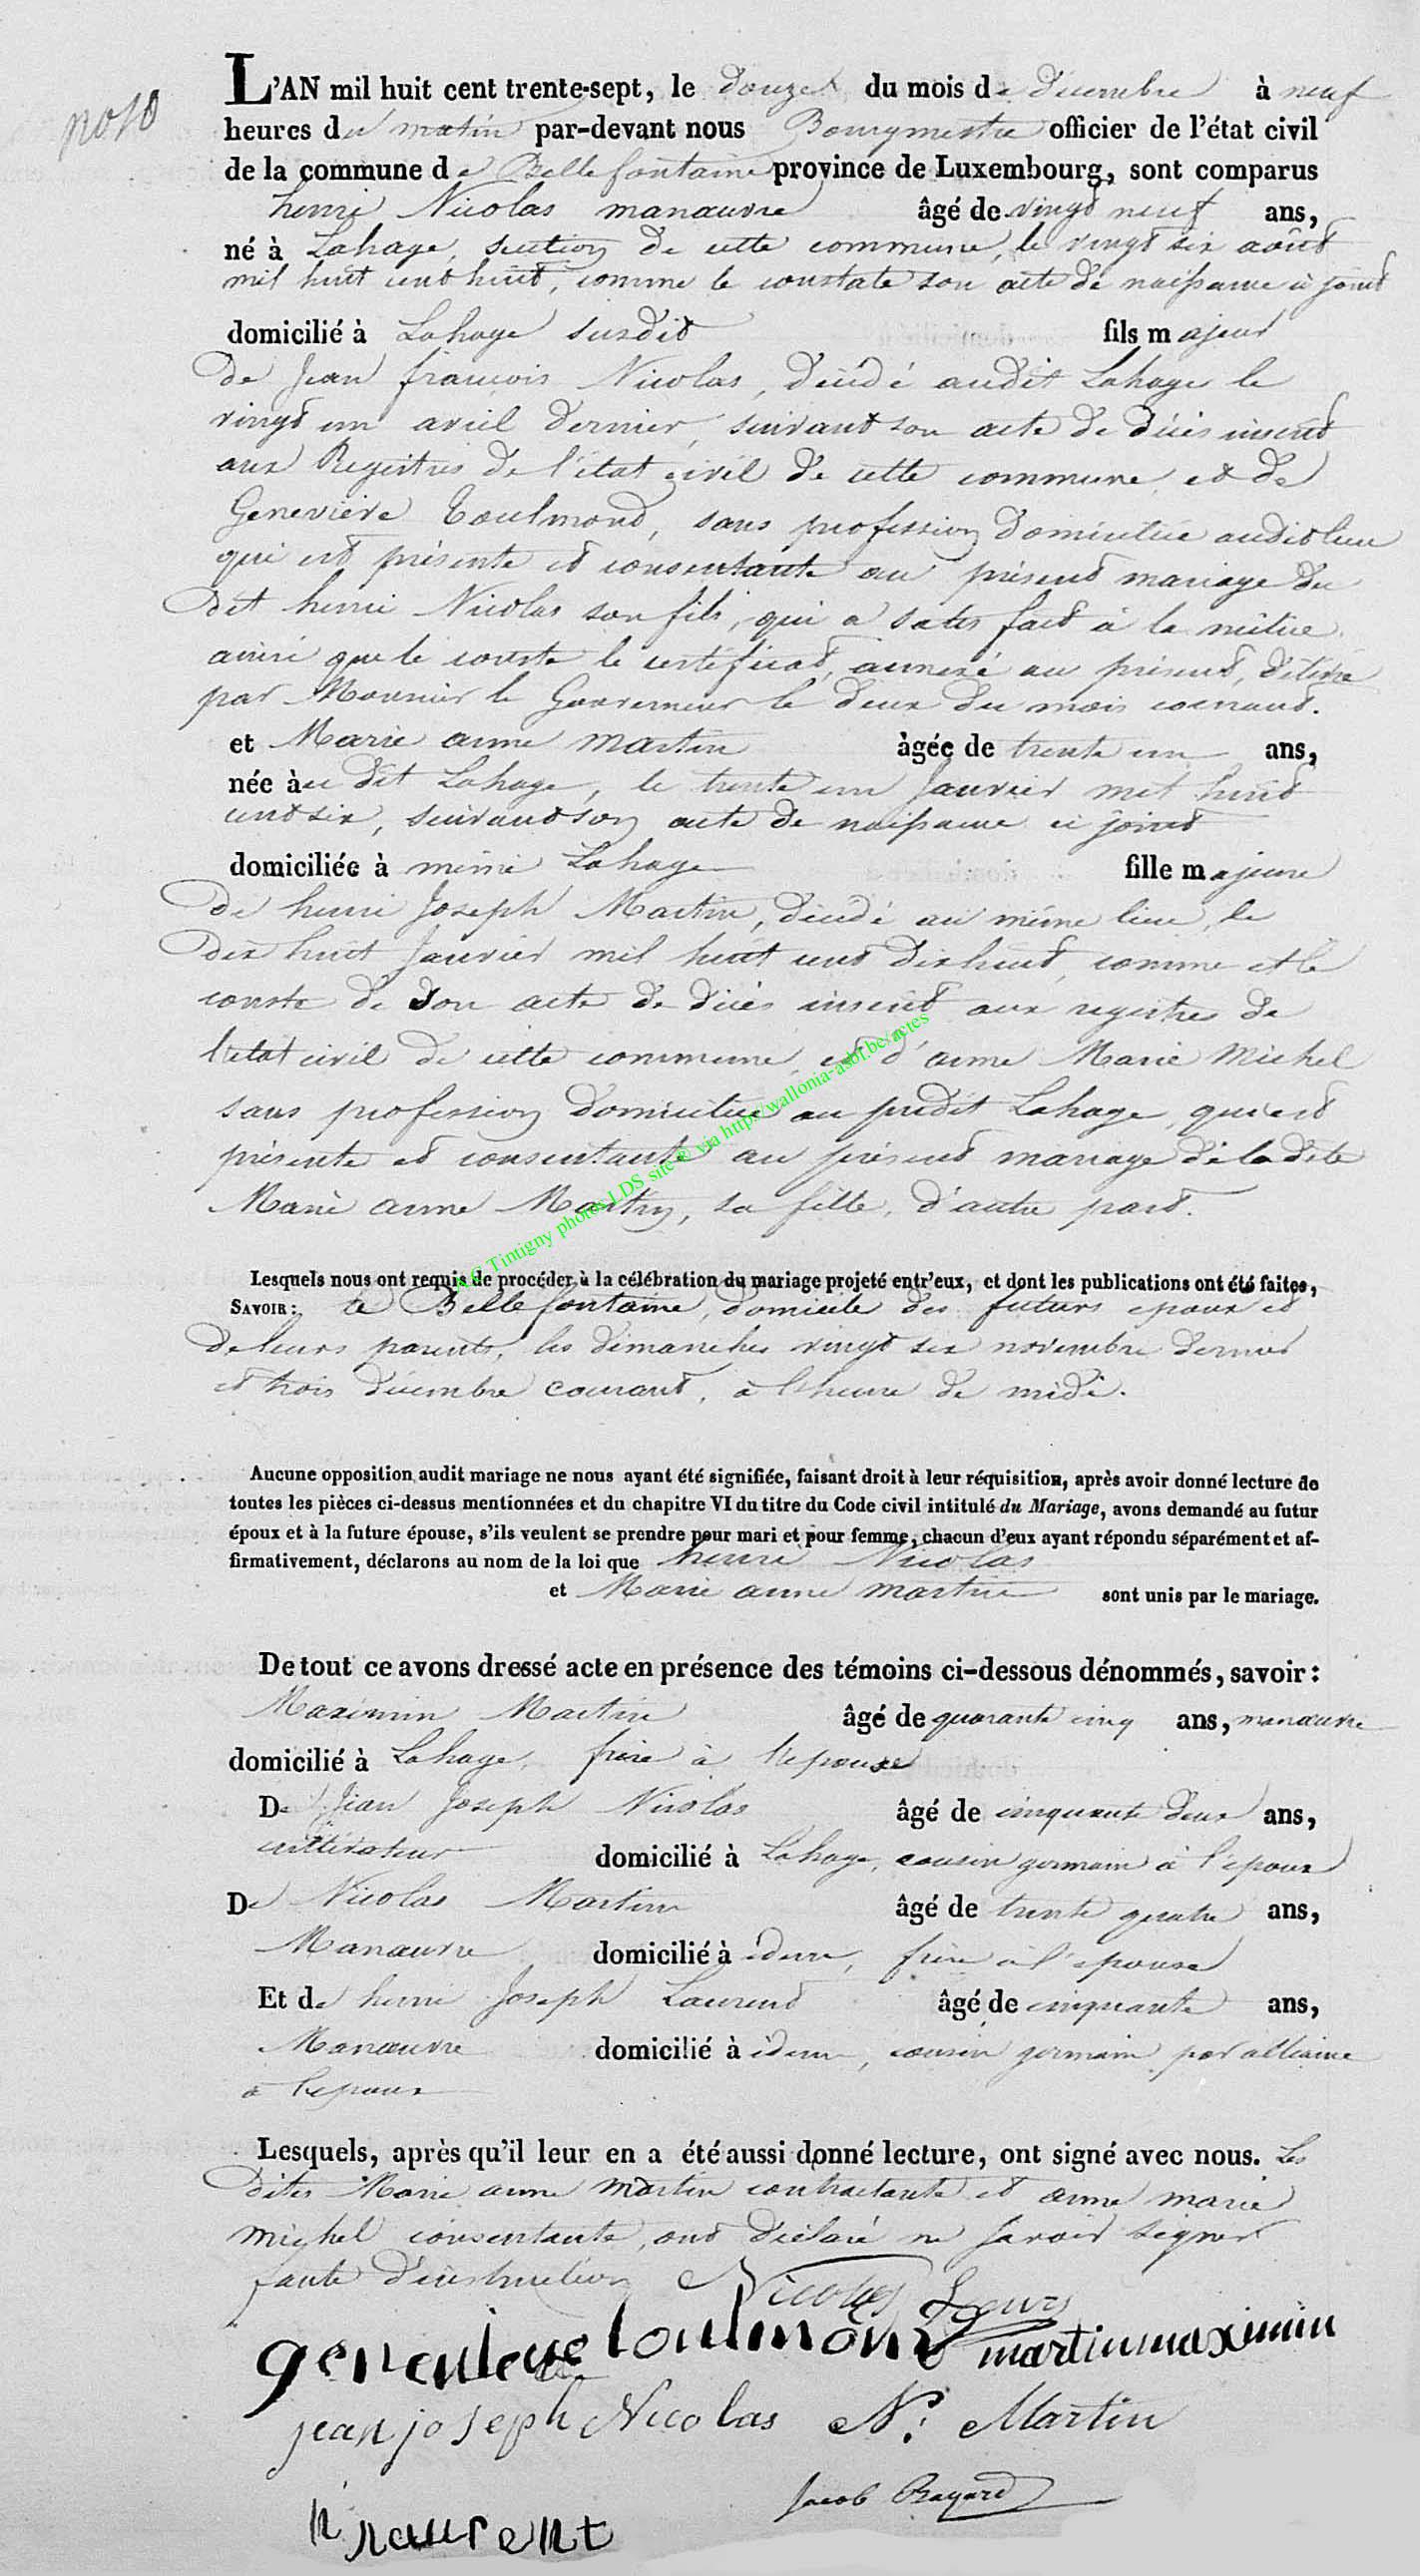 no 10
L'AN mil huit cent trente-sept, le douze du mois de decembre à neuf
heures du matin par-devant nous Bourgmestre officier de l'état civil
de la commune de Bellefontaine province de Luxembourg, sont comparus
henri Nicolas manœuvre âgé de vingt neuf ans,
né à Lahage, section de cette commune, le vingt six août
mil huit cent huit, comme le constate son acte de naissance ci joint
domicilié à Lahage susdit fils majeur
de Jean françois Nicolas, décédé audit Lahage le
vingt un avril dernier, suivant son acte de décès inscrit
aux Registres de l'état civil de cette commune et de
Geneviève Toulmond, sans profession domiciliée audit lieu
qui est présente et consentante au présent mariage du
dit henri Nicolas son fils, qui a satisfait à la milice
ainsi que le conste le certificat, annexé au présent, délivré
par Monsieur le Gouverneur le deux du mois courant.
et Marie anne Martin âgée de trente un ans,
née àu dit Lahage, le trente un Janvier mil huit
cent six, suivant son acte de naissance ci joint
domiciliée à même Lahage fille majeure
de henri Joseph Martin, décédé au même lieu, le
dix huit Janvier mil huit cent dix huit, comme et le
conste de son acte de décès inscrit aux registres de
l'état civil de cette commune, et d'anne Marie Michel
sans profession domiciliée au predit Lahage, qui est
présente et consentante au présent mariage de la dite
Marie anne Martin, sa fille, d'autre part.
A.C. Tintigny photos LDS site © via http://wallonia-asbl.be/actes
Lesquels nous ont requis de procéder à la célébration du mariage projeté entr'eux, et dont les publications ont été faites,
SAVOIR: à Bellefontaine, domicile des futurs epoux et
de leurs parents, les dimanches vingt six novembre dernier
et trois décembre courant, à l'heure de midi.
Aucune opposition audit mariage ne nous ayant été signifiée, faisant droit à leur réquisition, après avoir donné lecture de
toutes les pièces ci-dessus mentionnées et du chapitre VI du titre du Code civil intitulé du Mariage, avons demandé au futur
époux et à la future épouse, s'ils veulent se prendre pour mari et pour femme, chacun d'eux ayant répondu séparément et af-
firmativement, déclarons au nom de la loi que henri Nicolas
et Marie anne martin sont unis par le mariage.
De tout ce avons dressé acte en présence des témoins ci-dessous dénommés, savoir:
Maximin Martin âgé de quarante cinq ans, manœuvre
domicilié à Lahage, frère à l'epouse
De Jean Joseph Nicolas âgé de cinquante deux ans,
cultivateur domicilié à Lahage, cousin germain à l'epoux
De Nicolas Martin âgé de trente quatre ans,
Manœuvre domicilié à idem, frère à l'epouse
Et de henri Joseph Laurent âgé de cinquante ans,
Manœuvre domicilié à idem, cousin germain par alliance
à l'epoux
Lesquels, après qu'il leur en a été aussi donné lecture, ont signé avec nous. Les
dites Marie anne Martin contractante et anne marie
Michel consentante, ont déclaré ne savoir signer
faute d'instruction
Nicolas henry
genevieve toulmond martin maximin
jean joseph Nicolas N. Martin
Jacob Bayard
h laurent